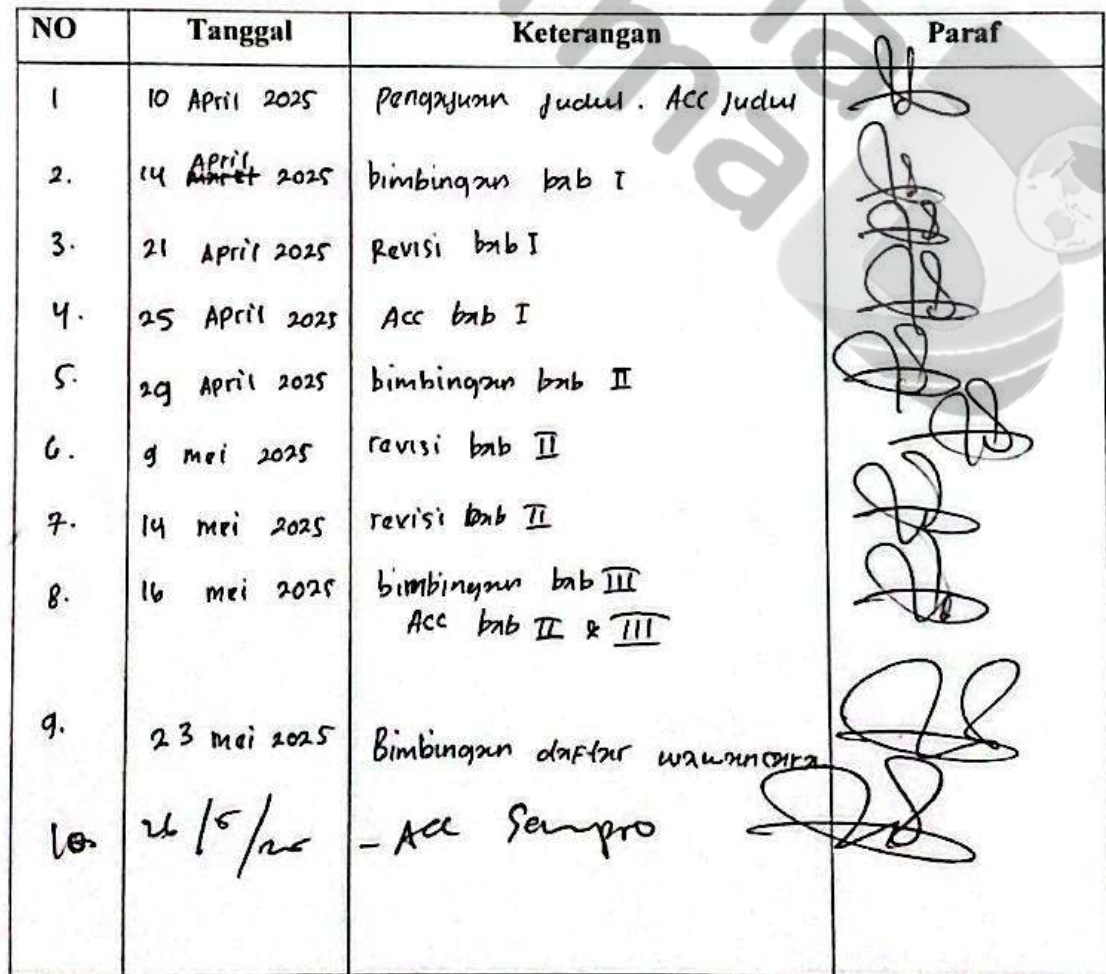 NO Tanggal Keterangan Paraf
1 10 April 2025 pengajuan judul. ACC judul
2. 14 April maret 2025 bimbingan bab I
3. 21 April 2025 Revisi bab I
4. 25 April 2025 Acc bab I
5. 29 April 2025 bimbingan bab II
6. 9 mei 2025 revisi bab II
7. 14 mei 2025 revisi bab II
8. 16 mei 2025 bimbingan bab III
Acc bab II & III
9. 23 mei 2025 Bimbingan daftar wawancara
10. 26/5/25 - Acc Sempro